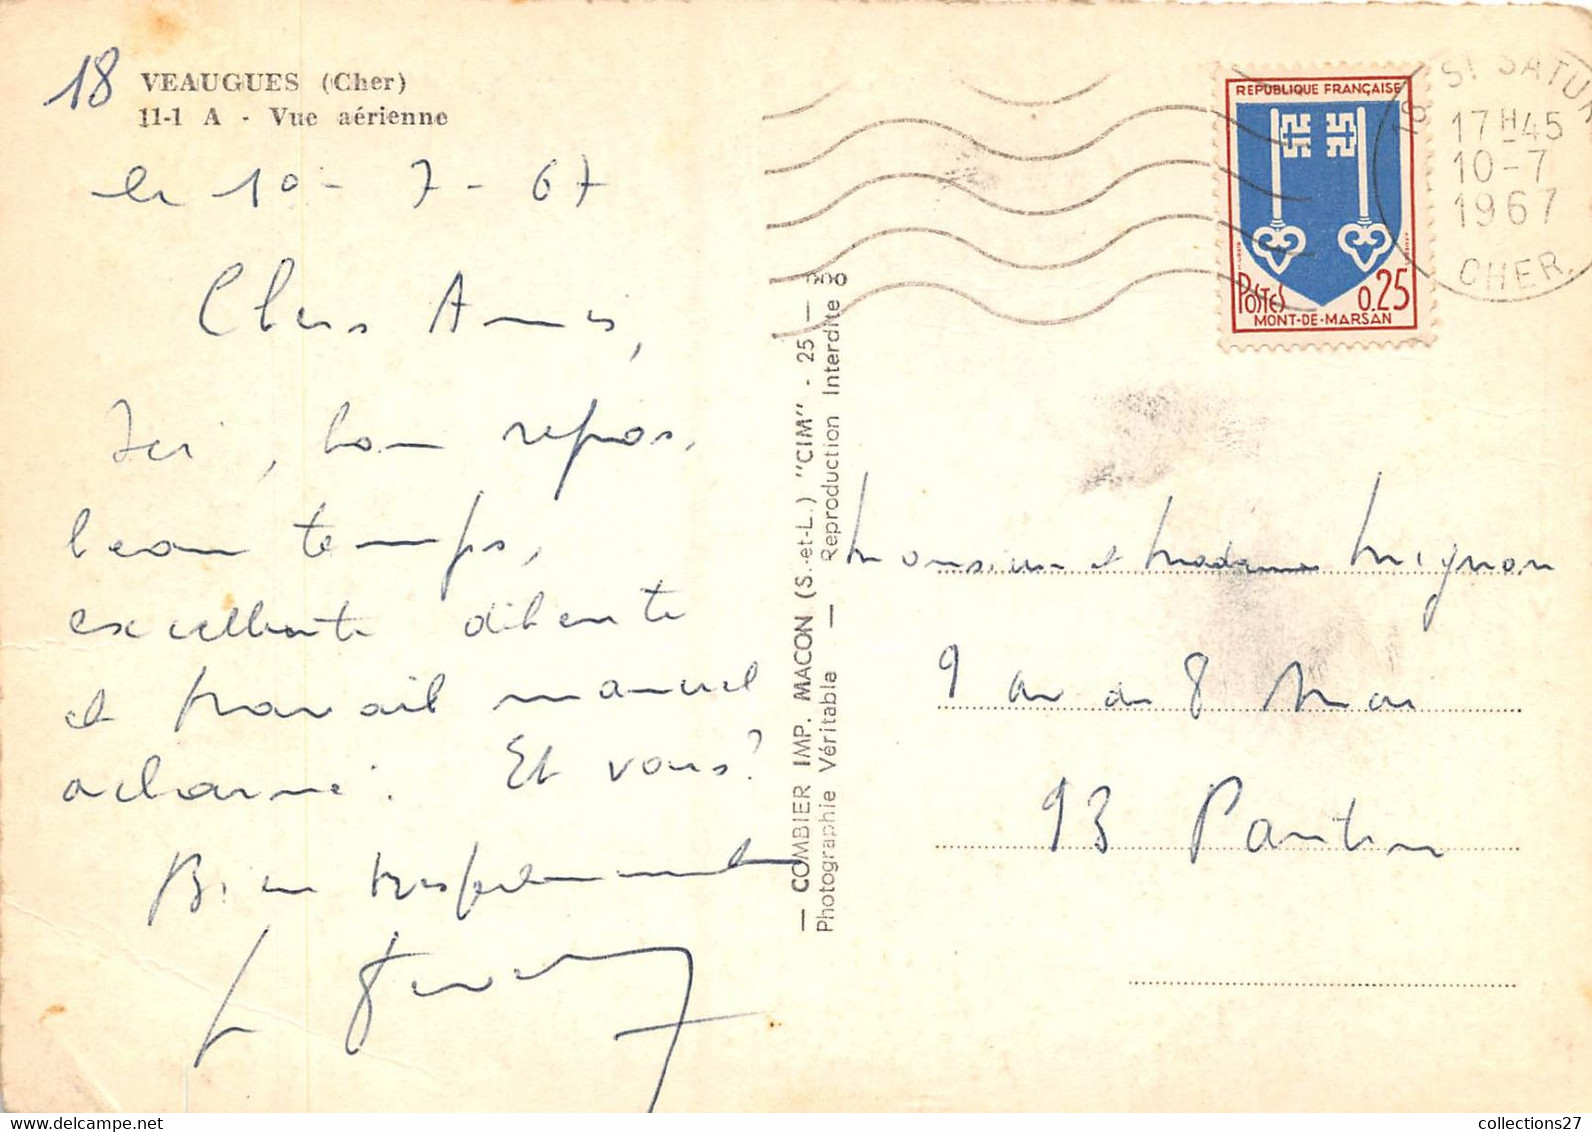 18
VEAUGUES (Cher)
11-1 A - Vue aérienne
le 10-7-67
Chers Amis,
Ici, bon repos,
beau temps,
excellente détente
et travail manuel
acharné. Et vous?
Bien
— COMBIER IMP. MACON (S.-et-L.) "CIM" - 25 —
Photographie Véritable — Reproduction Interdite
REPUBLIQUE FRANÇAISE
POSTES 0.25
MONT-DE-MARSAN
18 St SATUR
17H45
10-7
1967
CHER.
Monsieur et Madame Mignon
9 av du 8 Mai
93 Pantin
collections27